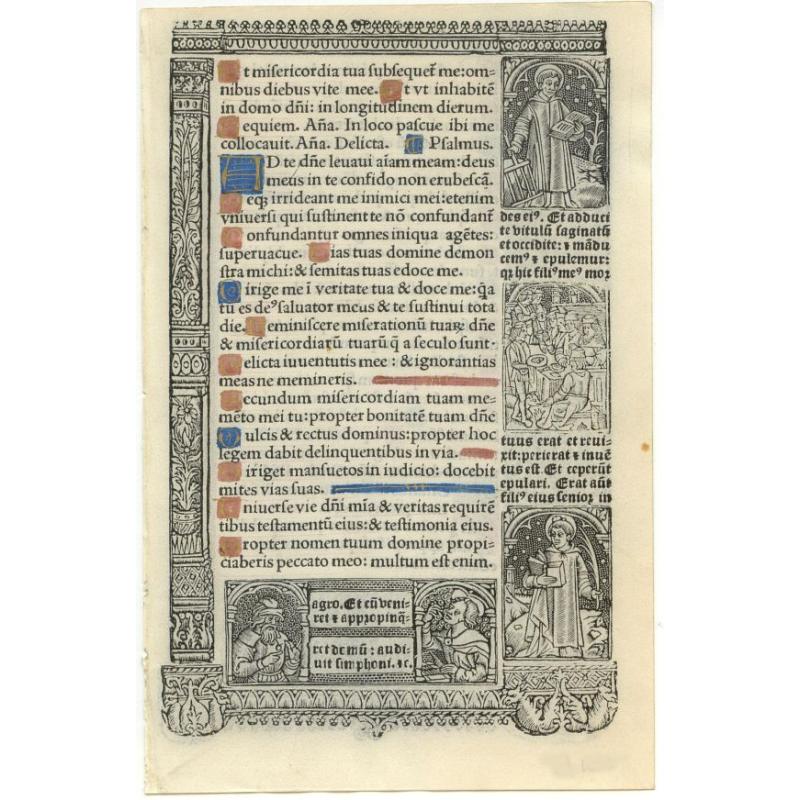 Et misericordia tua subsequet̃ me:om=
nibus diebus vite mee. Et vt inhabitẽ
in domo dñi: in longitudinem dierum.
Requiem. Añã. In loco pascue ibi me
collocauit. Añã. Delicta. Psalmus.
AD te dñe leuaui aĩam meam:deus
meus in te confido non erubescã.
Neqꝫ irrideant me inimici mei:etenim
vniuersi qui sustinent te nõ confundant̃
Confundantur omnes iniqua agẽtes:
superuacue. Vias tuas domine demon
stra michi:& semitas tuas edoce me.
Dirige me ĩ veritate tua & doce me:q̃a
tu es deꝰ saluator meus & te sustinui tota
die. Reminiscere miserationũ tuaꝝ dñe
& misericordiarũ tuarũ q̃ a seculo sunt·
Delicta iuuentutis mee : & ignorantias
meas ne memineris.
Secundum misericordiam tuam me=
mẽto mei tu:propter bonitatẽ tuam dñe
Dulcis & rectus dominus:propter hoc
legem dabit delinquentibus in via.
Diriget mansuetos in iudicio: docebit
mites vias suas.
Vniuerse vie dñi mĩa & veritas requirẽ
tibus testamentũ eius:& testimonia eius.
Propter nomen tuum domine propi=
ciaberis peccato meo: multum est enim.
des eiꝰ. Et adduci
te vitulũ saginatũ
et occidite: ⁊ mãdu
cemꝰ ⁊ epulemur:
qꝛ hic filiꝰ meꝰ mor
tuus erat et reui=
xit: perierat ⁊ inuẽ
tus est. Et ceperũt
epulari. Erat aũt
filiꝰ eius senior in
agro. Et cũ veni=
ret ⁊ appropinq̃=
ret domũ : audi=
uit simphoni. ⁊c.